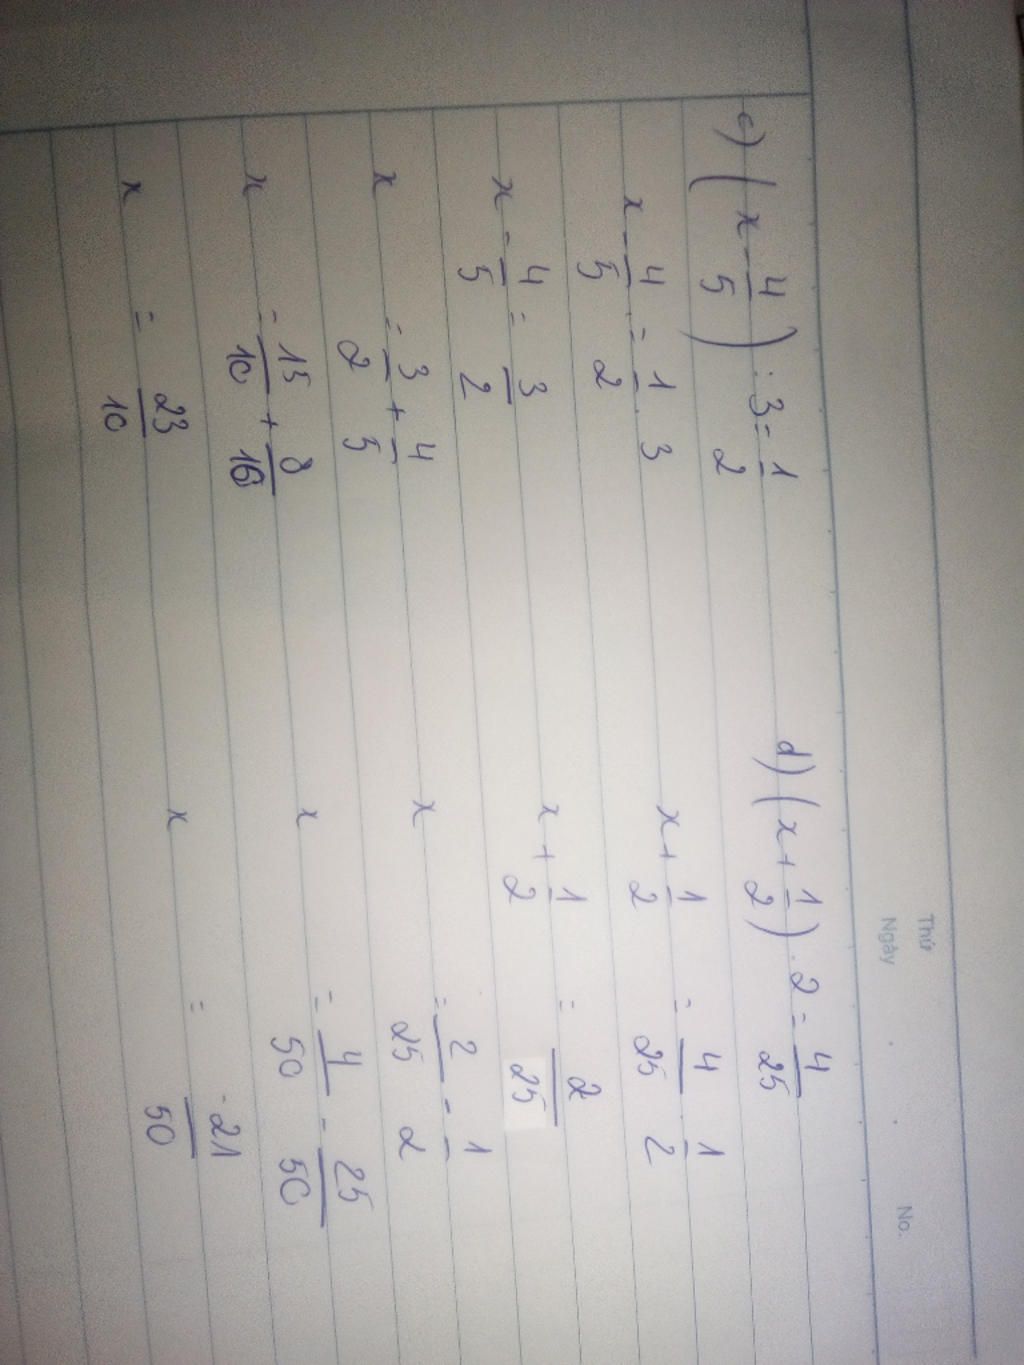 Thứ
Ngày . . No.
c) (x - 4/5) : 3 = 1/2
x - 4/5 = 1/2 . 3
x - 4/5 = 3/2
x = 3/2 + 4/5
x = 15/10 + 8/10
x = 23/10
d) (x + 1/2) . 2 = 4/25
x + 1/2 = 4/25 . 1/2
x + 1/2 = 2/25
x = 2/25 - 1/2
x = 4/50 - 25/50
x = -21/50